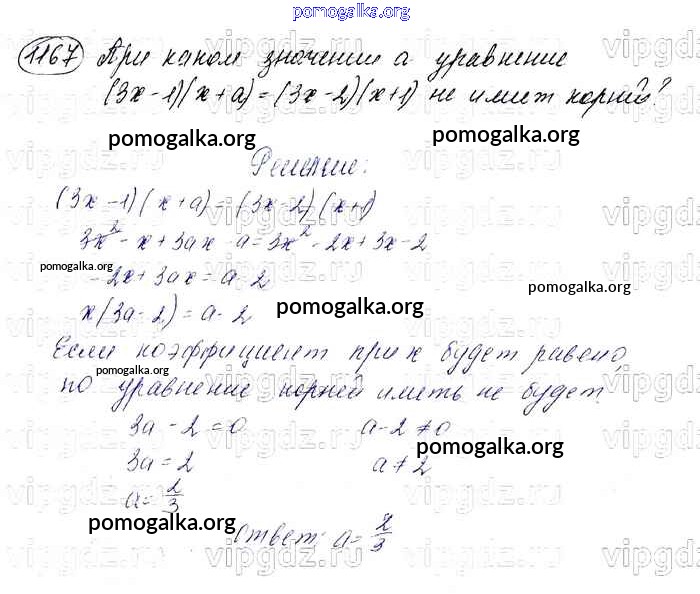 pomogalka.org
1167 При каком значении а уравнение
(3x-1)(x+a)=(3x-2)(x+1) не имеет корней?
pomogalka.org pomogalka.org
Решение:
(3x-1)(x+a)=(3x-2)(x+1)
3x²-x+3ax-a=3x²-2x+3x-2
pomogalka.org
-2x+3ax=a-2
pomogalka.org
x(3a-2)=a-2
pomogalka.org
Если коэффициент при x будет равен 0,
pomogalka.org
то уравнение корней иметь не будет.
3a-2=0 a-2≠0
pomogalka.org
3a=2 a≠2
a=2/3
pomogalka.org
Ответ: a=2/3
vipgdz.ru